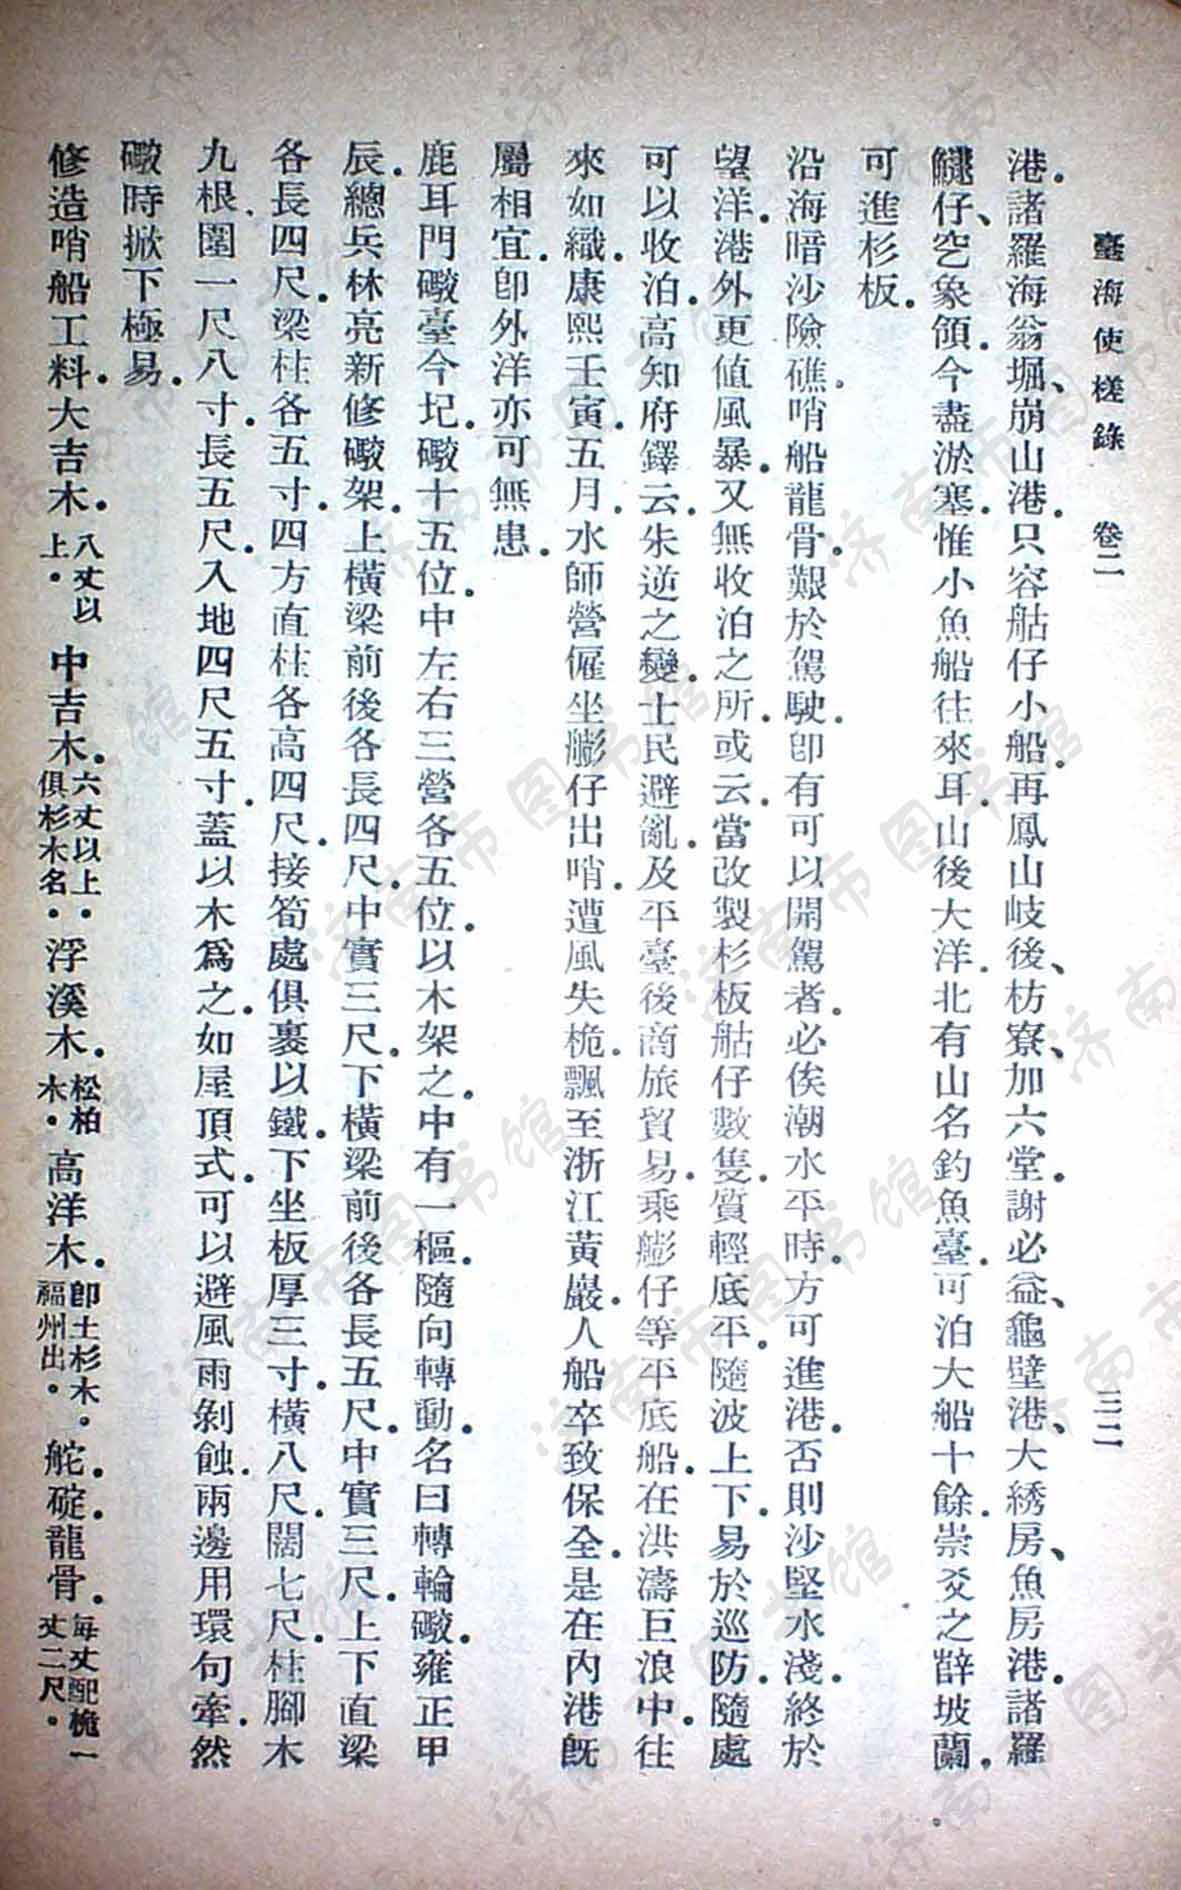 臺海使槎錄 卷二 三二
港。諸羅海翁堀、崩山港。只容𦨭仔小船。再鳳山岐後、枋寮、加六堂。謝必益、龜壁港、大綉房、魚房港。諸羅
鱙仔、空象領。今盡淤塞。惟小魚船往來耳。山後大洋。北有山名釣魚臺。可泊大船十餘。崇爻之薛坡蘭。
可進杉板。
沿海暗沙險礁。哨船龍骨。艱於駕駛。卽有可以開駕者。必俟潮水平時。方可進港。否則沙堅水淺。終於
望洋。港外更值風暴。又無收泊之所。或云。當改製杉板𦨭仔數隻。質輕底平。隨波上下。易於巡防。隨處
可以收泊。高知府鐸云。朱逆之變。士民避亂。及平臺後商旅貿易。乘艍仔等平底船。在洪濤巨浪中。往
來如織。康熙壬寅。五月。水師營僱坐艍仔出哨。遭風失桅。飄至浙江黃巖。人船卒致保全。是在內港旣
屬相宜。卽外洋亦可無患。
鹿耳門礮臺今圮。礮十五位。中左右三營各五位。以木架之。中有一樞。隨向轉動。名曰轉輪礮。雍正甲
辰。總兵林亮新修礮架。上橫梁前後各長四尺。中實三尺。下橫梁前後各長五尺。中實三尺。上下直梁
各長四尺。梁柱各五寸。四方直柱各高四尺。接筍處俱裹以鐵。下坐板厚三寸。橫八尺。闊七尺。柱腳木
九根。圍一尺八寸。長五尺。入地四尺五寸。蓋以木爲之。如屋頂式。可以避風雨剝蝕。兩邊用環句牽。然
礮時掀下極易。
修造哨船工料。大吉木。八丈以上。中吉木。六丈以上。俱杉木名。浮溪木。松柏木。高洋木。卽土杉木。福州出。舵。碇。龍骨。每丈配桅一丈二尺。